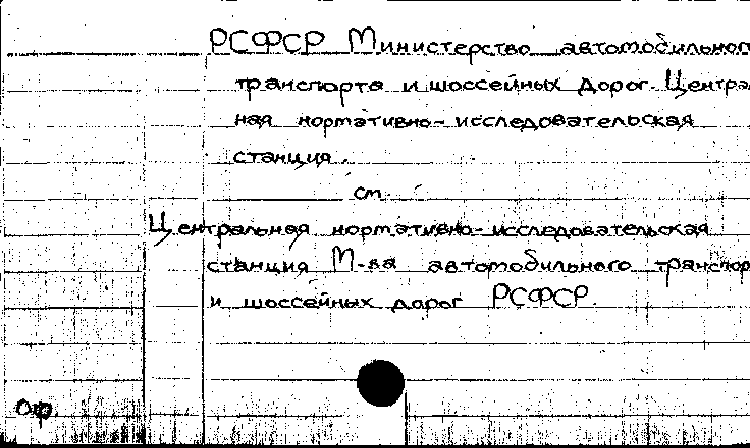 РСФСР Министерство автомобильног
транспорта и шоссейных дорог. Центра
ная нормативно-исследовательская
станция.
см.
Центральная нормативно-исследовательская
станция М-ва автомобильного транспор
и шоссейных дорог РСФСР.
Оф